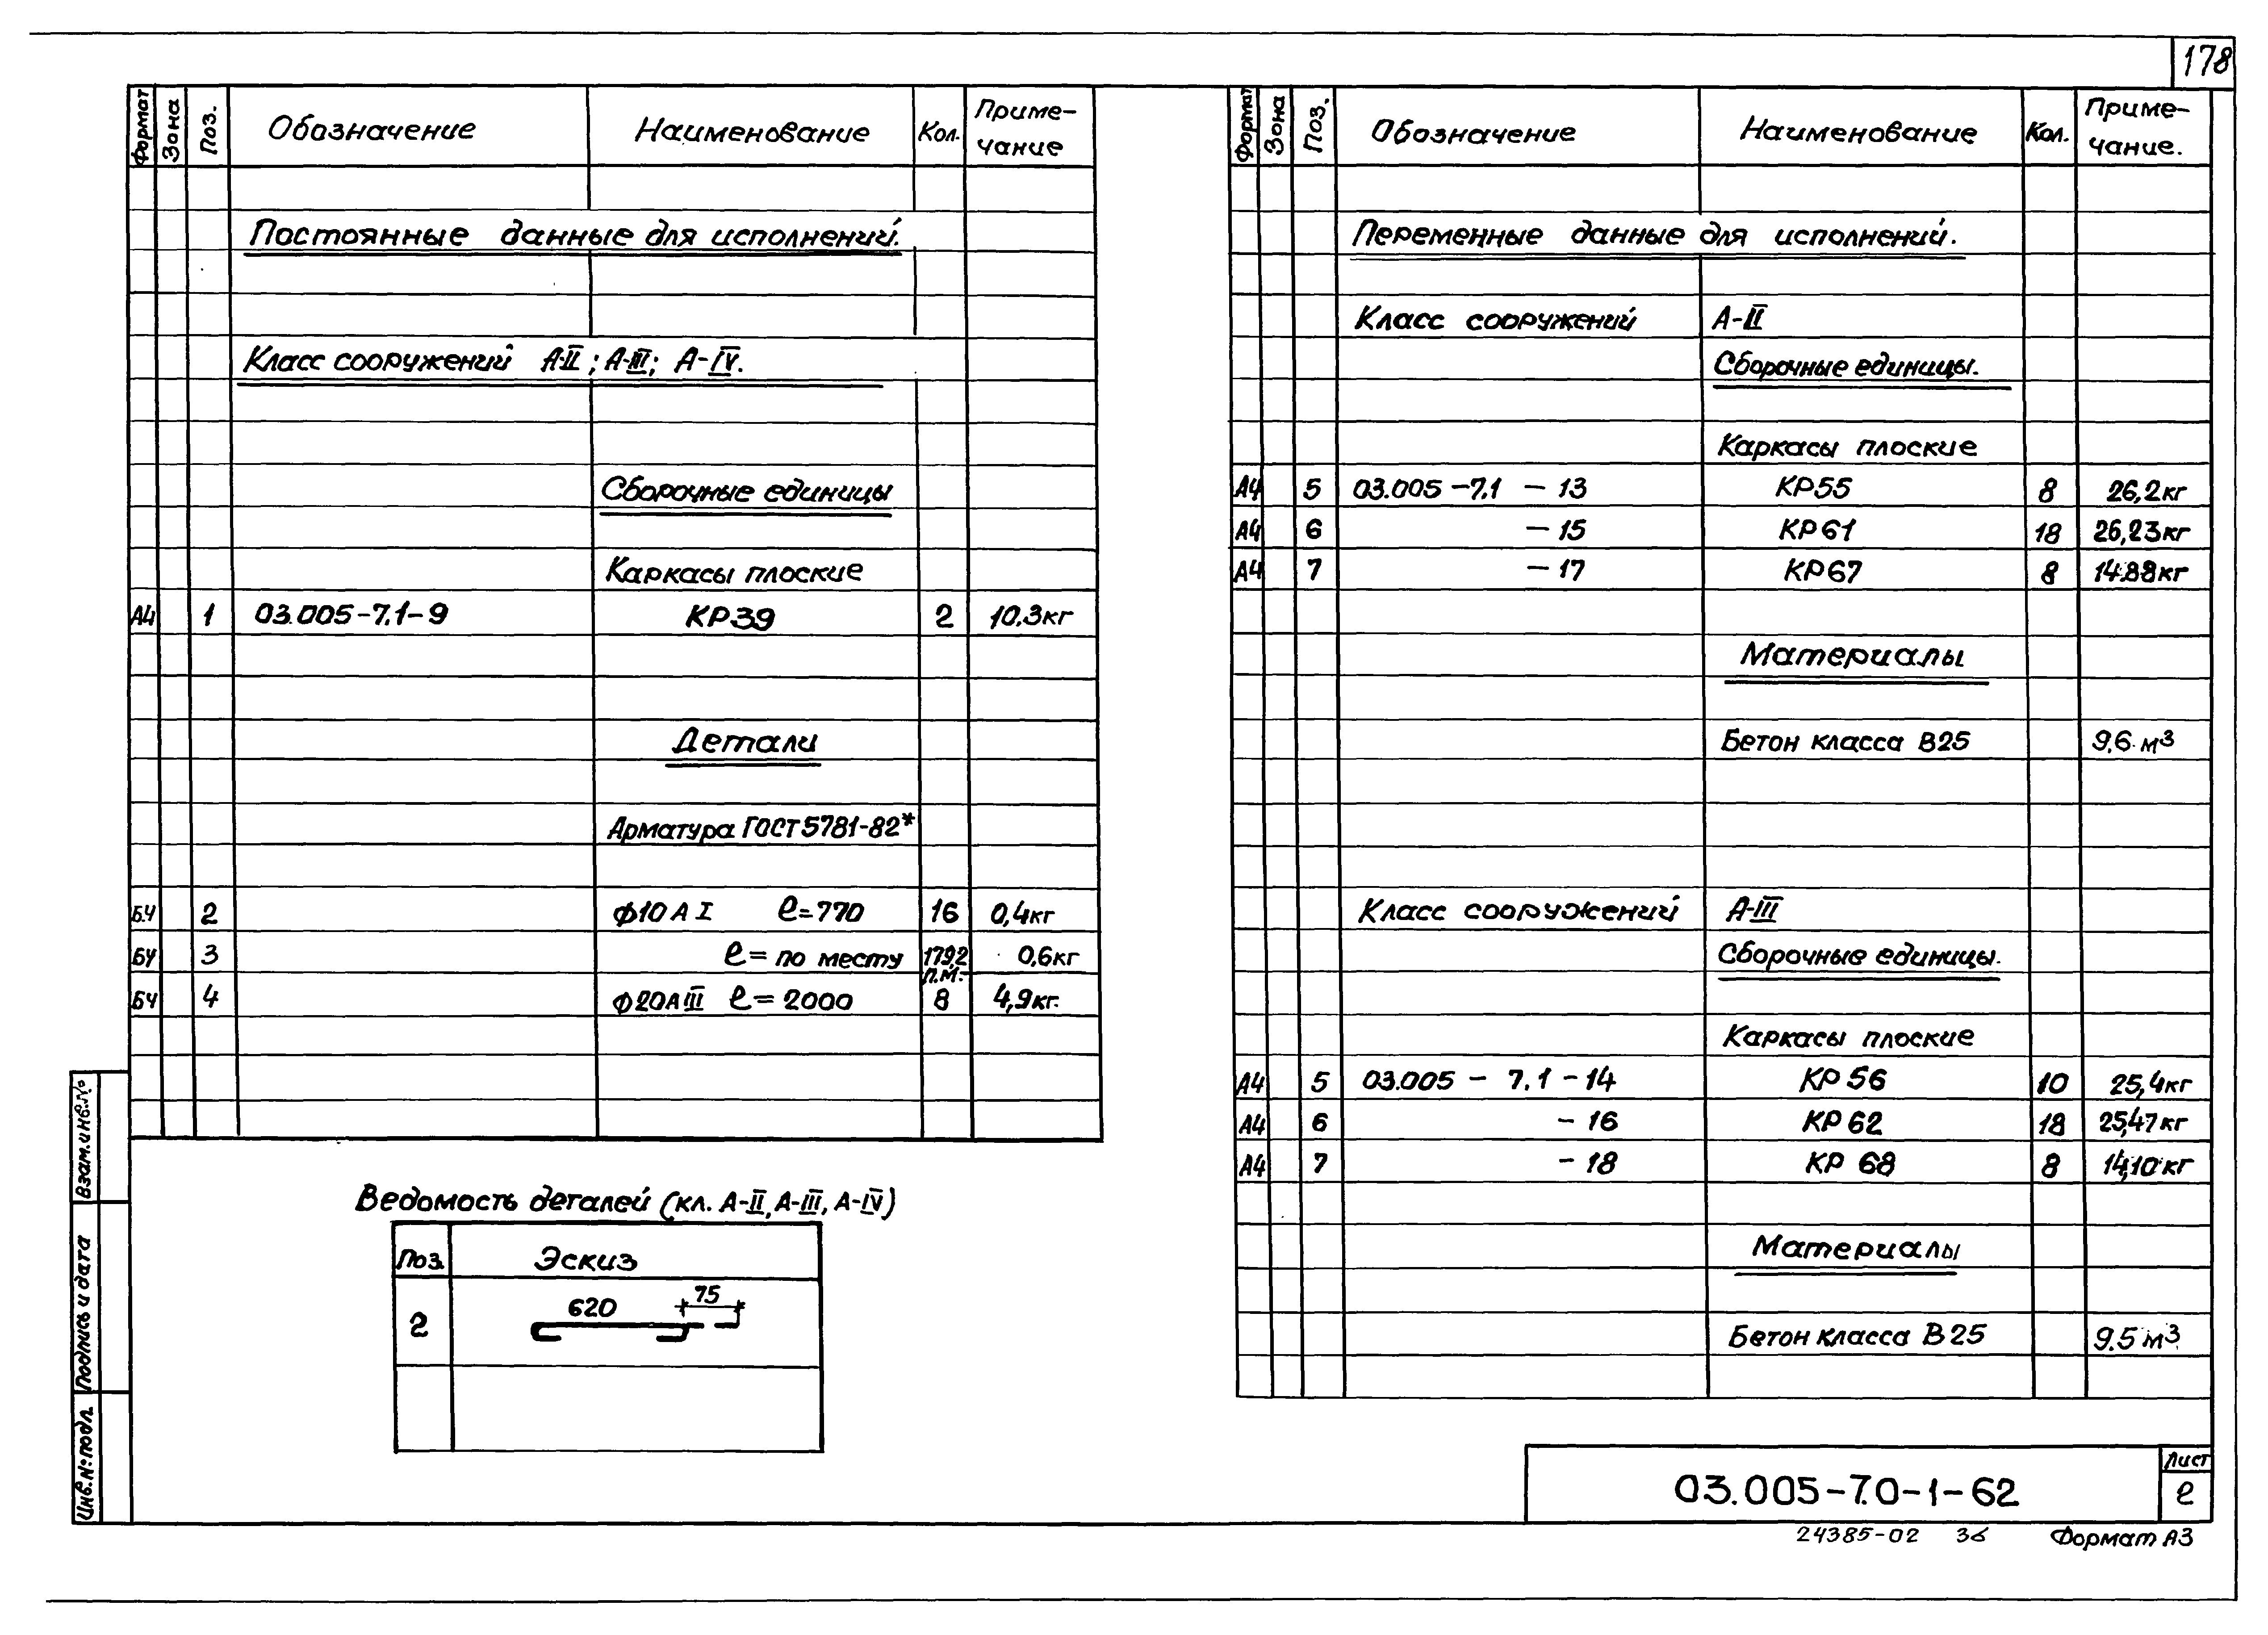 178
Формат Зона Поз. Обозначение Наименование Кол. Приме-
чание
Постоянные данные для исполнений.
Класс сооружений А-II; А-III; А-IV.
Сборочные единицы
Каркасы плоские
А4 1 03.005-7.1-9 КР39 2 10.3кг
Детали
Арматура ГОСТ 5781-82*
Б.Ч 2 ф10 А I ℓ=770 16 0,4кг
БЧ 3 ℓ= по месту 179,2 п.м. 0,6кг
БЧ 4 ф20АIII ℓ= 2000 8 4,9кг.
Ведомость деталей (кл. А-II, А-III, А-IV)
Поз. Эскиз
2 620 75
Формат Зона Поз. Обозначение Наименование Кол. Приме-
чание.
Переменные данные для исполнений.
Класс сооружений А-II
Сборочные единицы.
Каркасы плоские
А4 5 03.005-7.1 - 13 КР55 8 26,2кг
А4 6 - 15 КР61 18 26,23кг
А4 7 - 17 КР67 8 14.88кг
Материалы
Бетон класса В25 9.6 м³
Класс сооружений А-III
Сборочные единицы.
Каркасы плоские
А4 5 03.005 - 7.1 - 14 КР 56 10 25,4кг
А4 6 - 16 КР 62 18 25,47кг
А4 7 - 18 КР 68 8 14,10кг
Материалы
Бетон класса В25 9.5 м³
Взам.инв.№
Подпись и дата
Инв.№подл.
03.005-7.0-1-62
Лист
2
24385-02 36 Формат А3